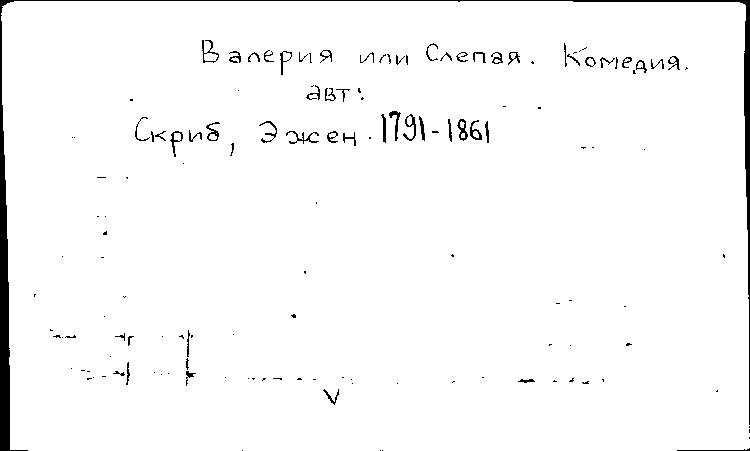 Валерия или Слепая. Комедия.
авт:
Скриб, Эжен. 1791-1861
V